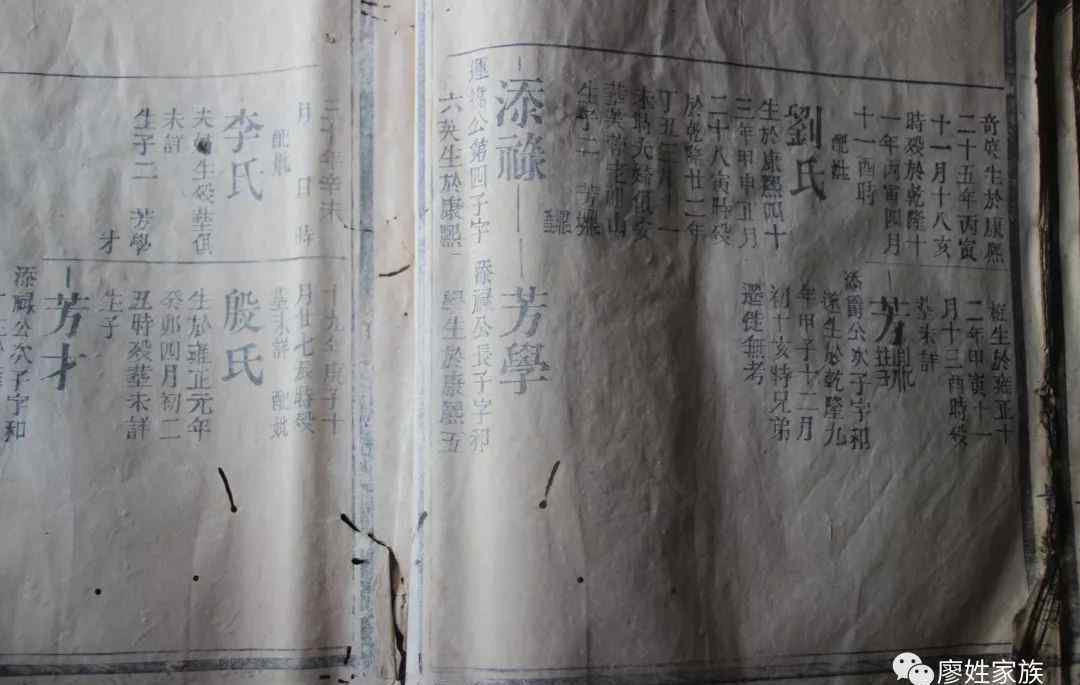 奇英生於康熙
二十五年丙寅
十一月十八亥
時殁於乾隆十
一年丙寅四月
十一酉時
配妣
劉氏
生於康熙四十
三年甲申正月
二十八寅時殁
於乾隆廿二年
丁丑三月十一
未時夫婦俱安
山
生子二 芳
添祿
公第四子字
六英生於康熙
生於雍正十
二年甲寅十一
月十三酉時殁
葬未詳
芳
添爵公次子字和
生於乾隆九
年甲子十二月
初十亥時兄弟
遷徙無考
芳學
添祿公長子字和
學生於康熙五
三十年辛未
月 日 時
配妣
李氏
夫婦生殁葬俱
未詳
生子二 芳學
才
十九年庚子十
月廿七辰時殁
葬未詳 配妣
殷氏
生於雍正元年
癸卯四月初二
丑時殁葬未詳
生子
芳才
添祿公次子字和
廖姓家族